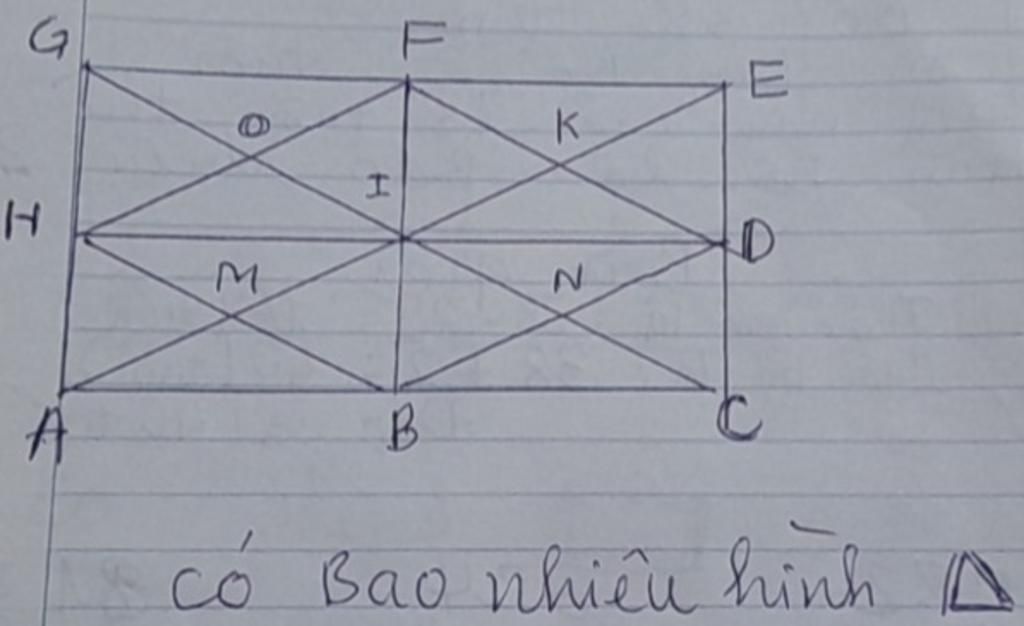 G F E
O K
I
H D
M N
A B C
có Bao nhiêu hình Δ